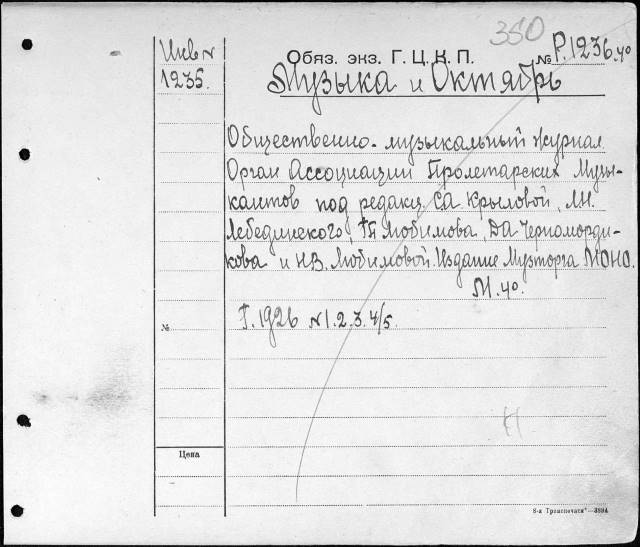 350
Инв N
1236.
Обяз. экз. Г. Ц. К. П.
№ Р.1236.4º
Музыка и Октябрь
Общественно-музыкальный журнал.
Орган Ассоциации Пролетарских Музы-
кантов под редакц. С.А. Крыловой, Л.Н.
Лебединского, Г.П. Любимова, Д.А. Черноморди-
кова и Н.В. Любимовой. Издание Музторга МОНО.
М. 4º.
Г. 1926 N 1. 2. 3. 4/5.
№
Цена
8-я „Транспечати“—3894